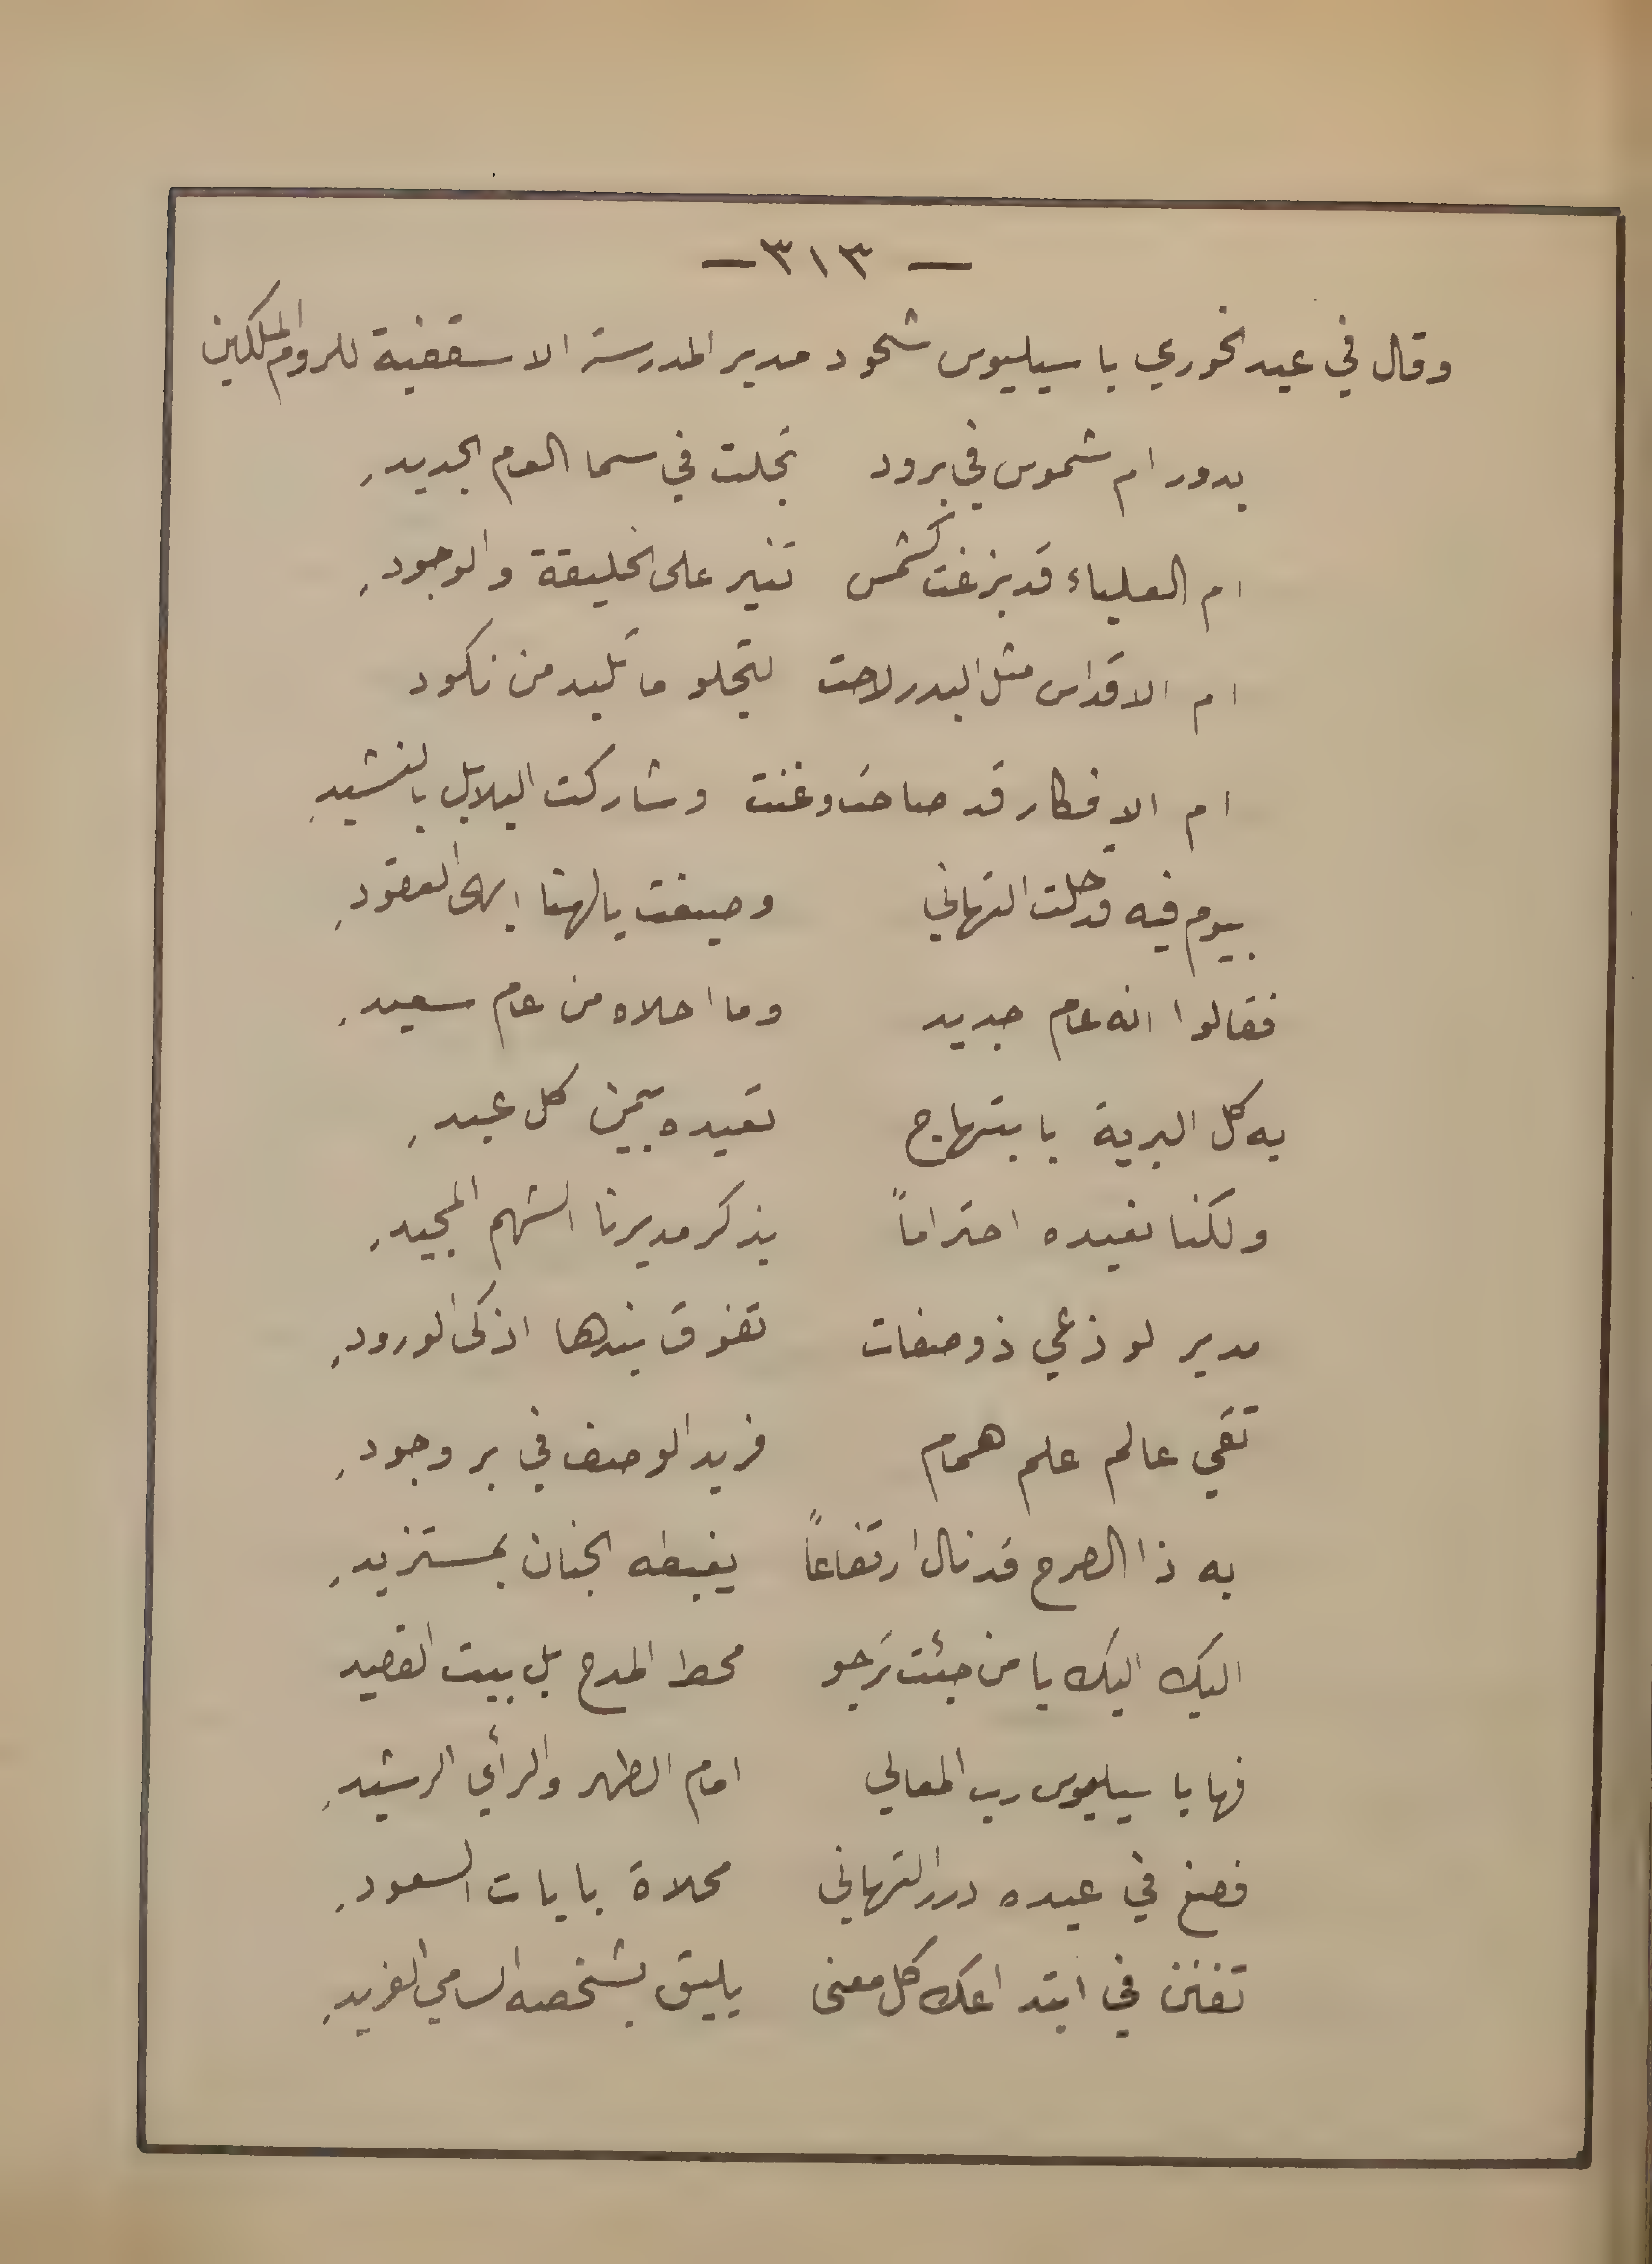 — ٣١٣ —
وقال في عيد الخوري باسيليوس شحود مدير المدرسة الاسقفية للروم الملكيين
بدور ام شموس في برود تجلت في سما العام الجديدِ
ام العلياء قد بزغت كشمس تنير على الخليقة والوجودِ
ام الاقداس مثل البدر لاحت لتجلو ما تلبد من نكود
ام الافكار قد صاحت وغنت وشاركت البلابل بالنشيدِ
بيوم فيه قد حلت التهاني وصيغت بالهنا ابهى العقودِ
فقالوا انه عام جديد وما احلاه من عام سعيدِ
به كل البرية بابتهاج تعيده بيمن كل عيدِ
ولكنا نعيده احتراماً بذكر مديرنا الشهم المجيدِ
مدير لوذعي ذو صفات تفوق بندها اذكى الورودِ
تقي عالم علم همام فريد الوصف في بر وجودِ
به ذا الصرح قد نال ارتفاعاً يغبطه الجنان بمستزيدِ
اليك اليك يا من جئت ترجو محط المدح بل بيت القصيد
فها باسيليوس رب المعالي امام الطهر والرأي الرشيدِ
فصغ في عيده درر التهاني محلاة بايات السعودِ
تفنن في ابتداعك كل معنى يليق بشخصه السامي الفريدِ